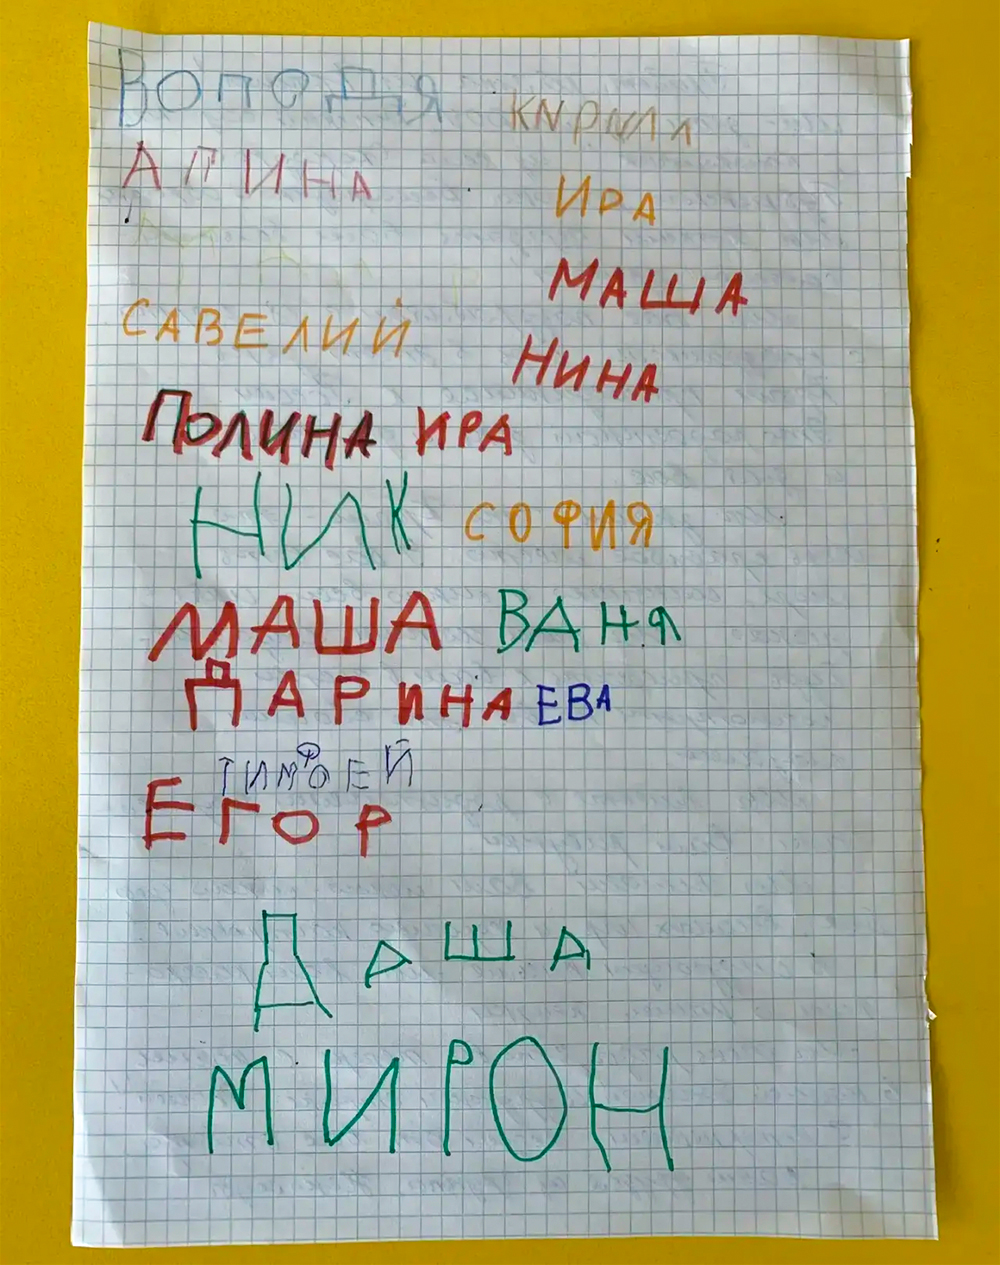 Володя
Кирилл
Алина
Ира
Маша
Савелий
Нина
Полина Ира
Ник София
Маша Ваня
Дарина Ева
Тимофей
Егор
Даша
Мирон